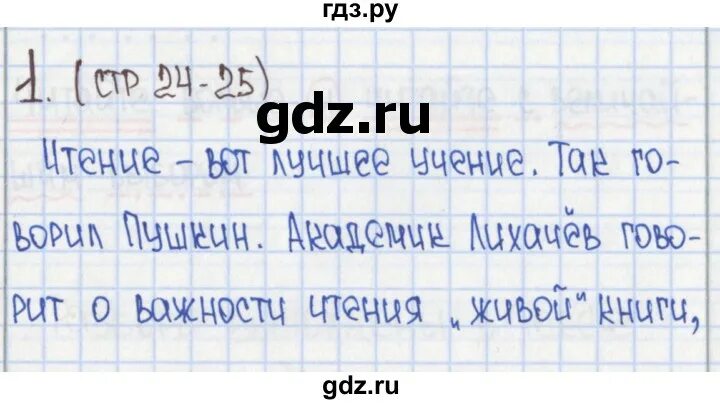 гдз.ру
1. (стр 24-25)
gdz.ru
Чтение - вот лучшее учение. Так го-
ворил Пушкин. Академик Лихачёв гово-
рит о важности чтения „живой" книги,
gdz.ru